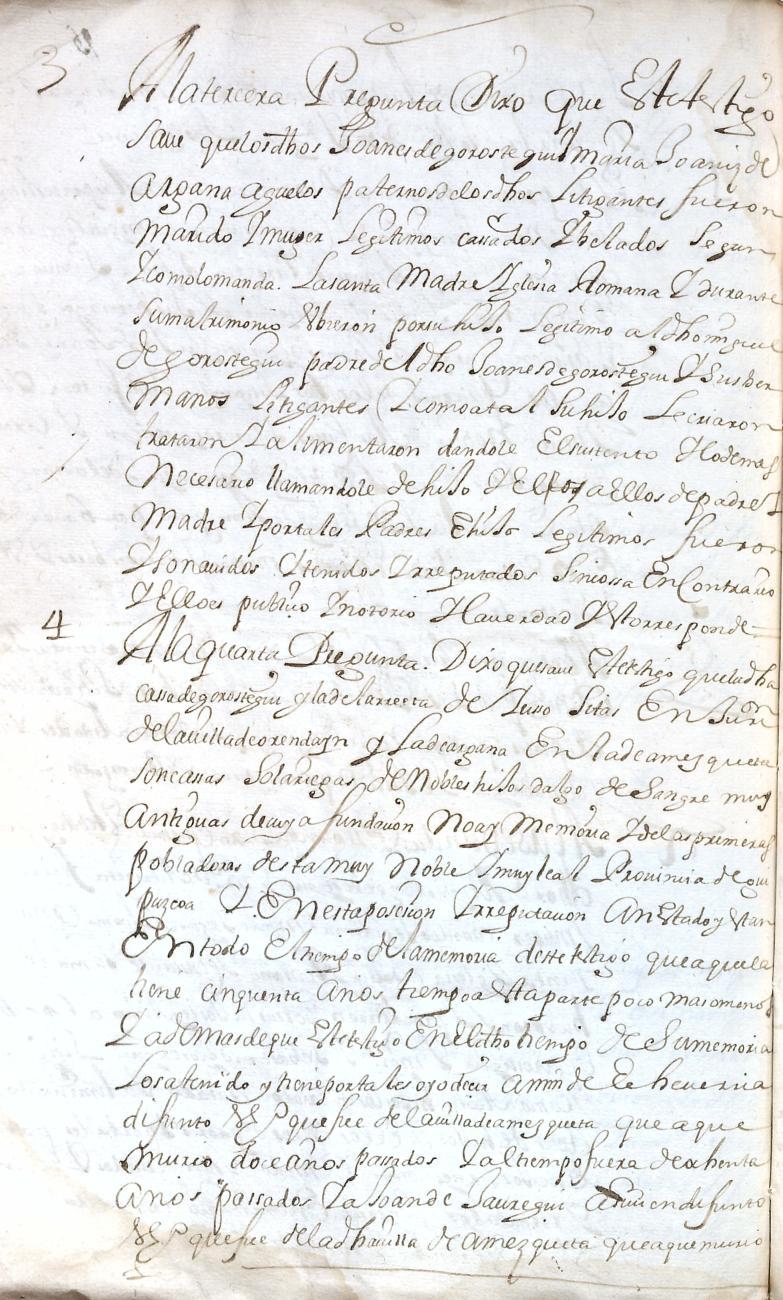 3
A la tercera Pregunta Dixo que Este testigo
save que los dhos Joanes de gorostegui y maria Joaniz de
argana aguelos paternos de los dhos Litigantes fueron
marido Y muger Legitimos cassados Y belados segun
Y como lo manda. La santa Madre Yglesia Romana Y durante
su matrimonio Ubieron por su hijo Legitimo al dho miguel
de gorostegui padre del dho Joanes de gorostegui Y sus her
manos Litigantes Y como a tal su hijo Le criaron
trataron Y alimentaron dandole El sustento Y lo demas
Necesario llamandole de hijo Y El a Ellos de padre Y
Madre Y por tales Padres E hijo Legitimos fueron
Y son avidos Y tenidos Y rreputados sin cossa En Contrario
Y Ello es publico Y notorio Y la verdad Y Esto rresponde
4
A la quarta Pregunta. Dixo que save Este testigo que la dha
cassa de gorostegui y la de larreeta de Susso sitas En Juron
de la villa de orendayn y La de argana En la de amezqueta
son cassas solariegas de Nobles hijos dalgo de sangre muy
antiguas de cuya fundacion No ay Memoria Y de las primeras
pobladoras desta muy Noble Y muy leal Provincia de gui
puzcoa Y. En esta posesion Y rreputacion an Estado y Estan
En todo El tiempo de la memoria deste testigo que aquella
tiene cinquenta años tiempo a Esta parte poco mas o menos
Y ademas de que Este testigo En El dho tiempo de su memoria
Los a tenido y tiene por tales oyo decir a min de Echeverria
difunto Vº que fue de la villa de amezqueta que a que
murio doce años passados Y al tiempo fuera de ochenta
años passados Y a Joan de Jauregui assi mismo difunto
Vº que fue de la dha villa de amezqueta que a que murio